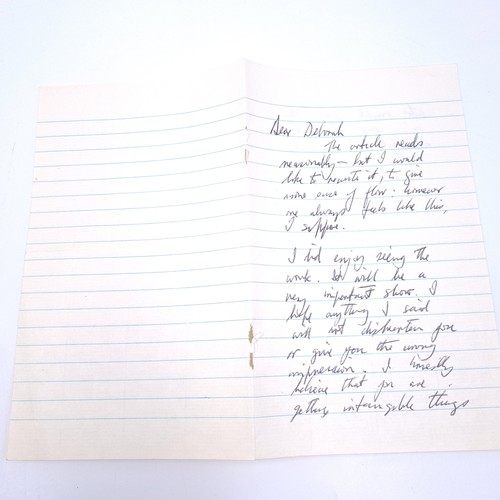 Dear Deborah
The article reads
reasonably – but I would
like to rewrite it, to give
more ease of flow: however
one always feels like this,
I suppose.
I did enjoy seeing the
work. It will be a
very important show. I
hope anything I said
will not dishearten you
or give you the wrong
impression. I honestly
believe that you are
getting intangible things